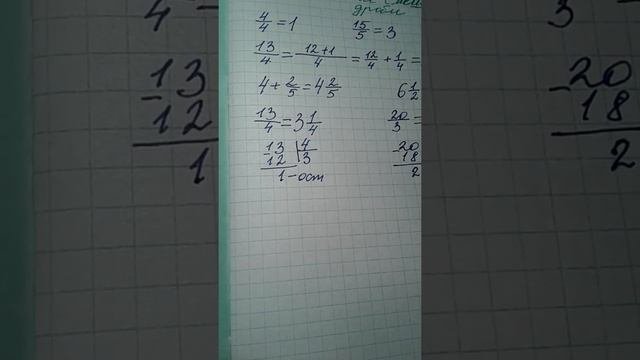 дроби
4/4 = 1 15/5 = 3
13/4 = 12+1/4 = 12/4 + 1/4 =
4 + 2/5 = 4 2/5 6 1/2
13/4 = 3 1/4 20/3 =
13 | 4 20
- 12 | 3 - 18
1 - ост 2